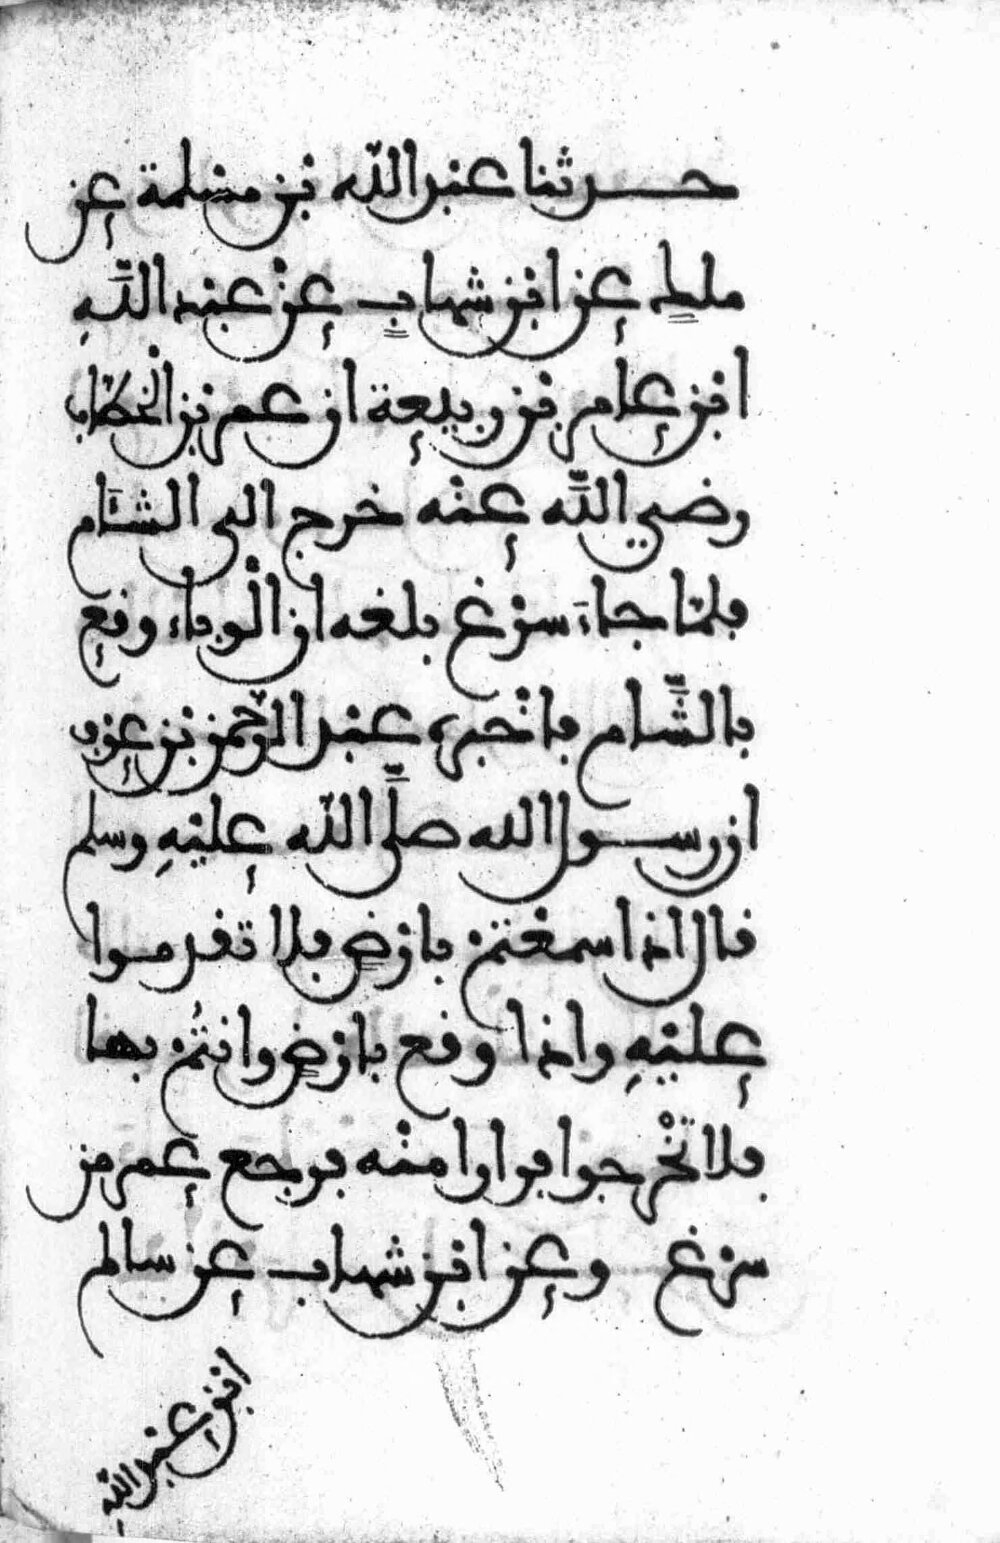 حدثنا عبد الله بن مسلمة عن
ملك عن ابن شهاب عن عبد الله
ابن عامر بن ربيعة ان عمر بن الخطاب
رضي الله عنه خرج الى الشام
فلما جاء سرغ بلغه ان الوباء وقع
بالشام فاخبره عبد الرحمن بن عوف
ان رسول الله صلى الله عليه وسلم
قال اذا سمعتم بارض فلا تقدموا
عليه واذا وقع بارض وانتم بها
فلا تخرجوا فرارا منه فرجع عمر من
سرغ وعن ابن شهاب عن سالم
ابن عبد الله